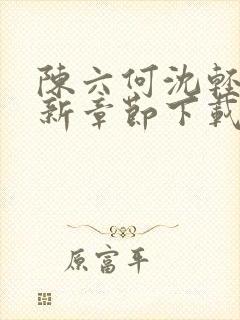 陳六何沈輕
新章節下載
原富平